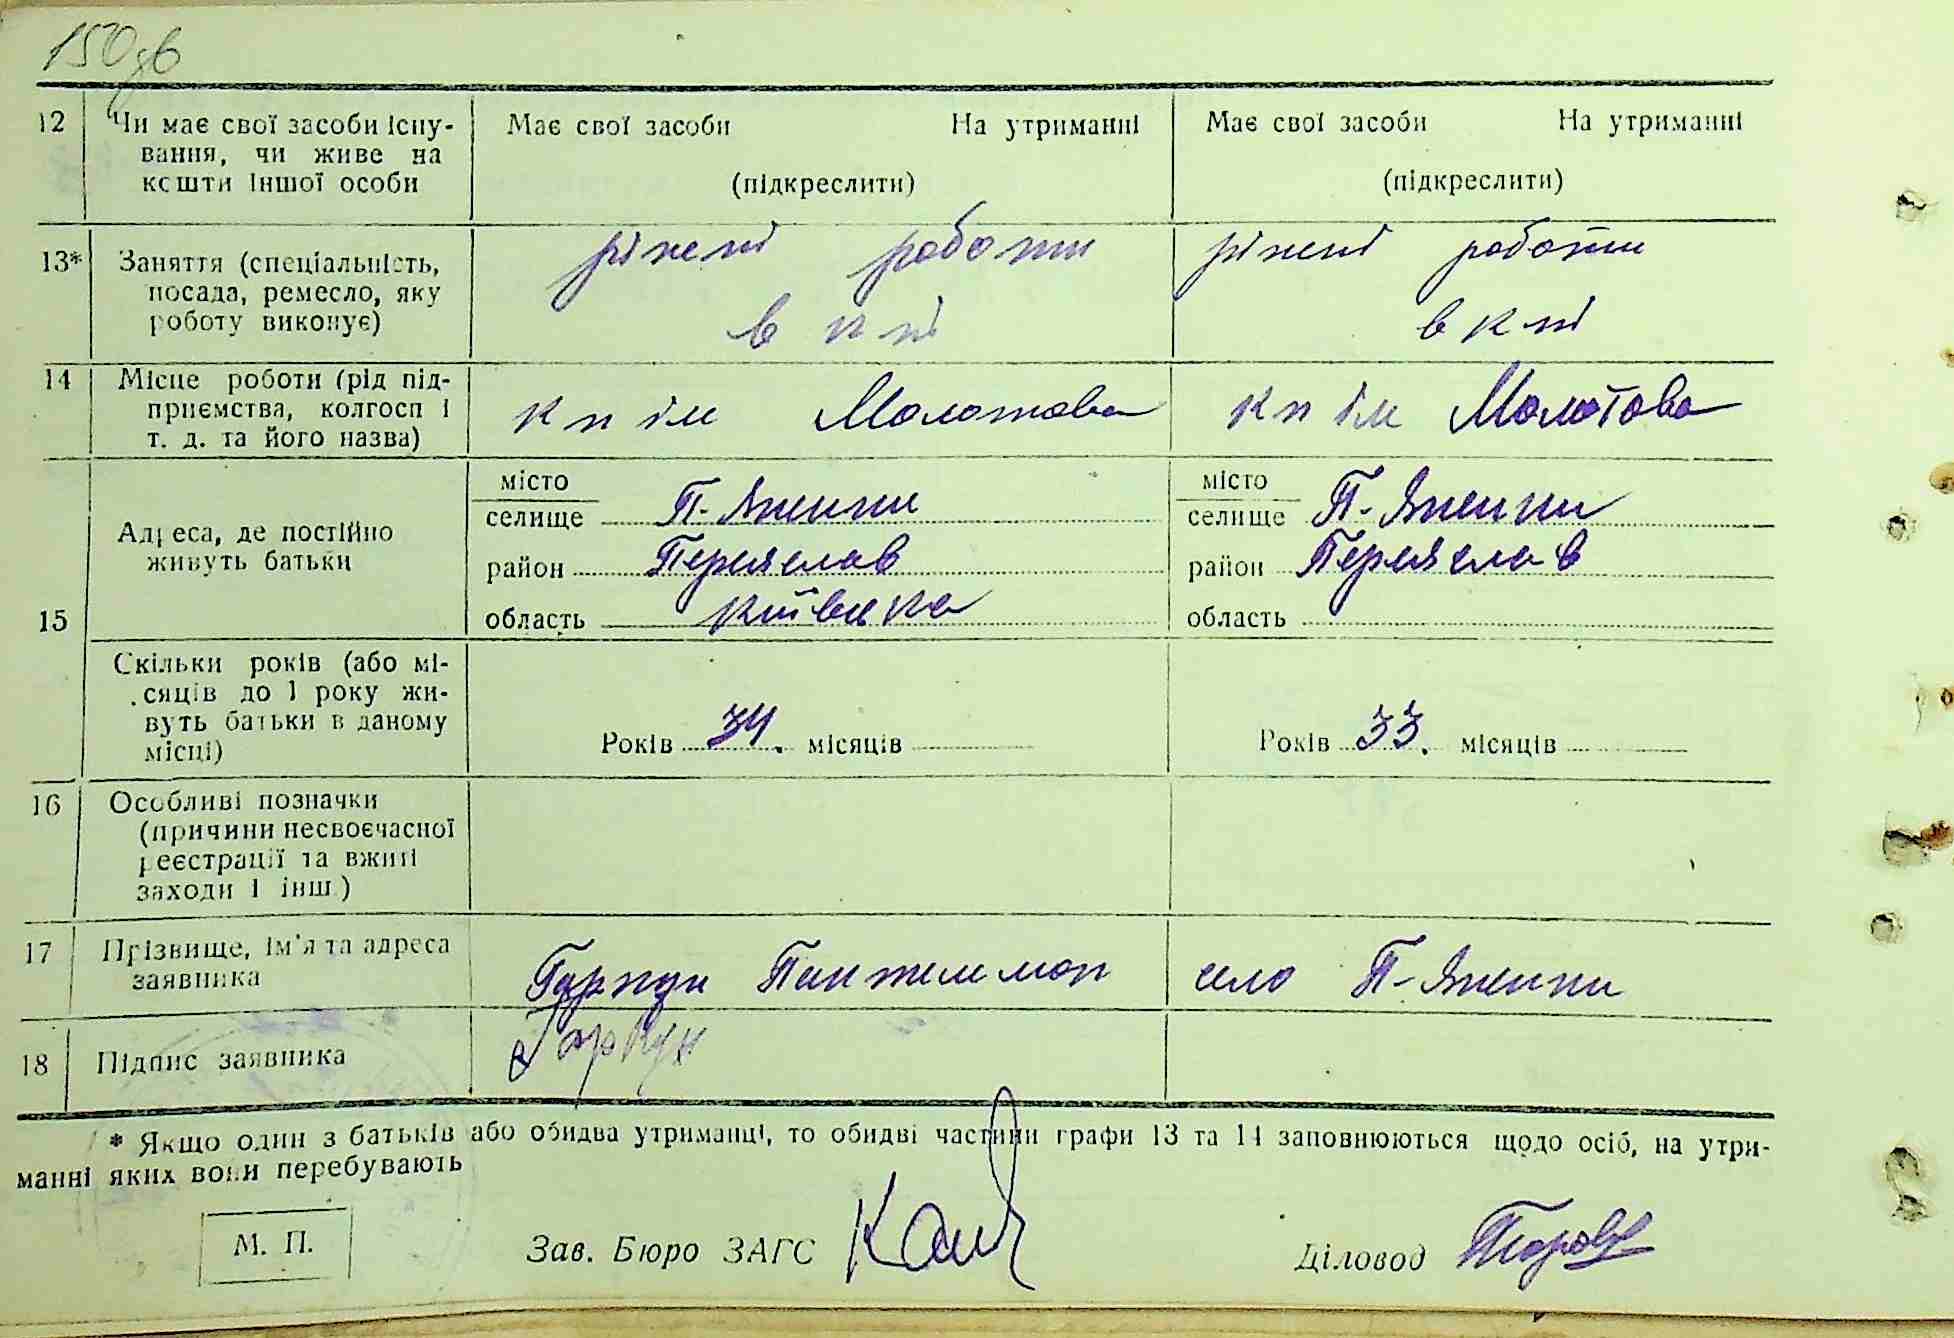 150зв
12 Чи має свої засоби існу- Має свої засоби На утриманні Має свої засоби На утриманні
вання, чи живе на
кошти іншої особи (підкреслити) (підкреслити)
13* Заняття (спеціальність, ріжні роботи ріжні роботи
посада, ремесло, яку
роботу виконує) в к п і в к п і
14 Місце роботи (рід під-
приємства, колгосп і к п ім Молотова к п ім Молотова
т. д. та його назва)
15 Адреса, де постійно
живуть батьки
місто місто
селище П-Яненки селище П-Яненки
район Переяслав район Переяслав
область Київська область
Скільки років (або мі-
сяців до 1 року жи-
вуть батьки в даному
місці) Років 34. місяців Років 33. місяців
16 Особливі позначки
(причини несвоєчасної
реєстрації та вжиті
заходи і інш.)
17 Прізвище, ім'я та адреса Гаркун Пантелемон село П-Яненки
заявника
18 Підпис заявника Гаркун
* Якщо один з батьків або обидва утриманці, то обидві частини графи 13 та 14 заповнюються щодо осіб, на утри-
манні яких вони перебувають
М. П. Зав. Бюро ЗАГС Діловод